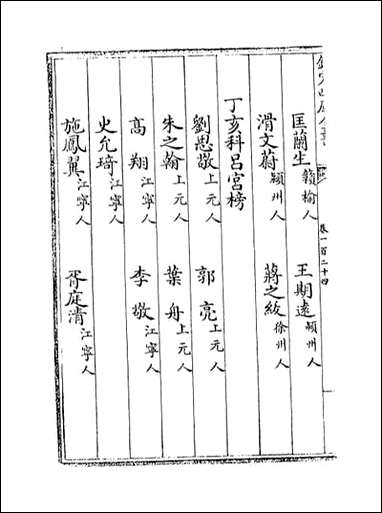 欽定四庫全書
卷一百二十四
匡蘭生贛榆人 王期遠潁州人
滑文蔚潁州人 蔣之紱徐州人
丁亥科吕宫榜
劉思敬上元人 郭亮上元人
朱之翰上元人 葉舟上元人
高翔江寧人 李敬江寧人
史允琦江寧人
施鳳翼江寧人 胥庭清江寧人